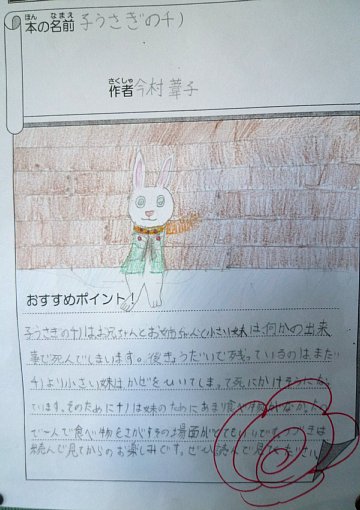 本の名前 子うさぎのチノ
ほん なまえ
作者 今村葦子
さくしゃ
おすすめポイント!
子うさぎのチノはお兄ちゃんとお姉ちゃんと小さい妹は何かの出来
事で死んでしまいます。後きょうだいで残っているのは、まだ
チノより小さい妹はかぜをひいてしまって死にかけそうになっ
ています。そのためにチノは妹のためにあまり食べ物がないなか、
一人で食べ物をさがすその場面がとてもいいです。つづきは
読んで見てからのお楽しみです。ぜひ読んで見てください。